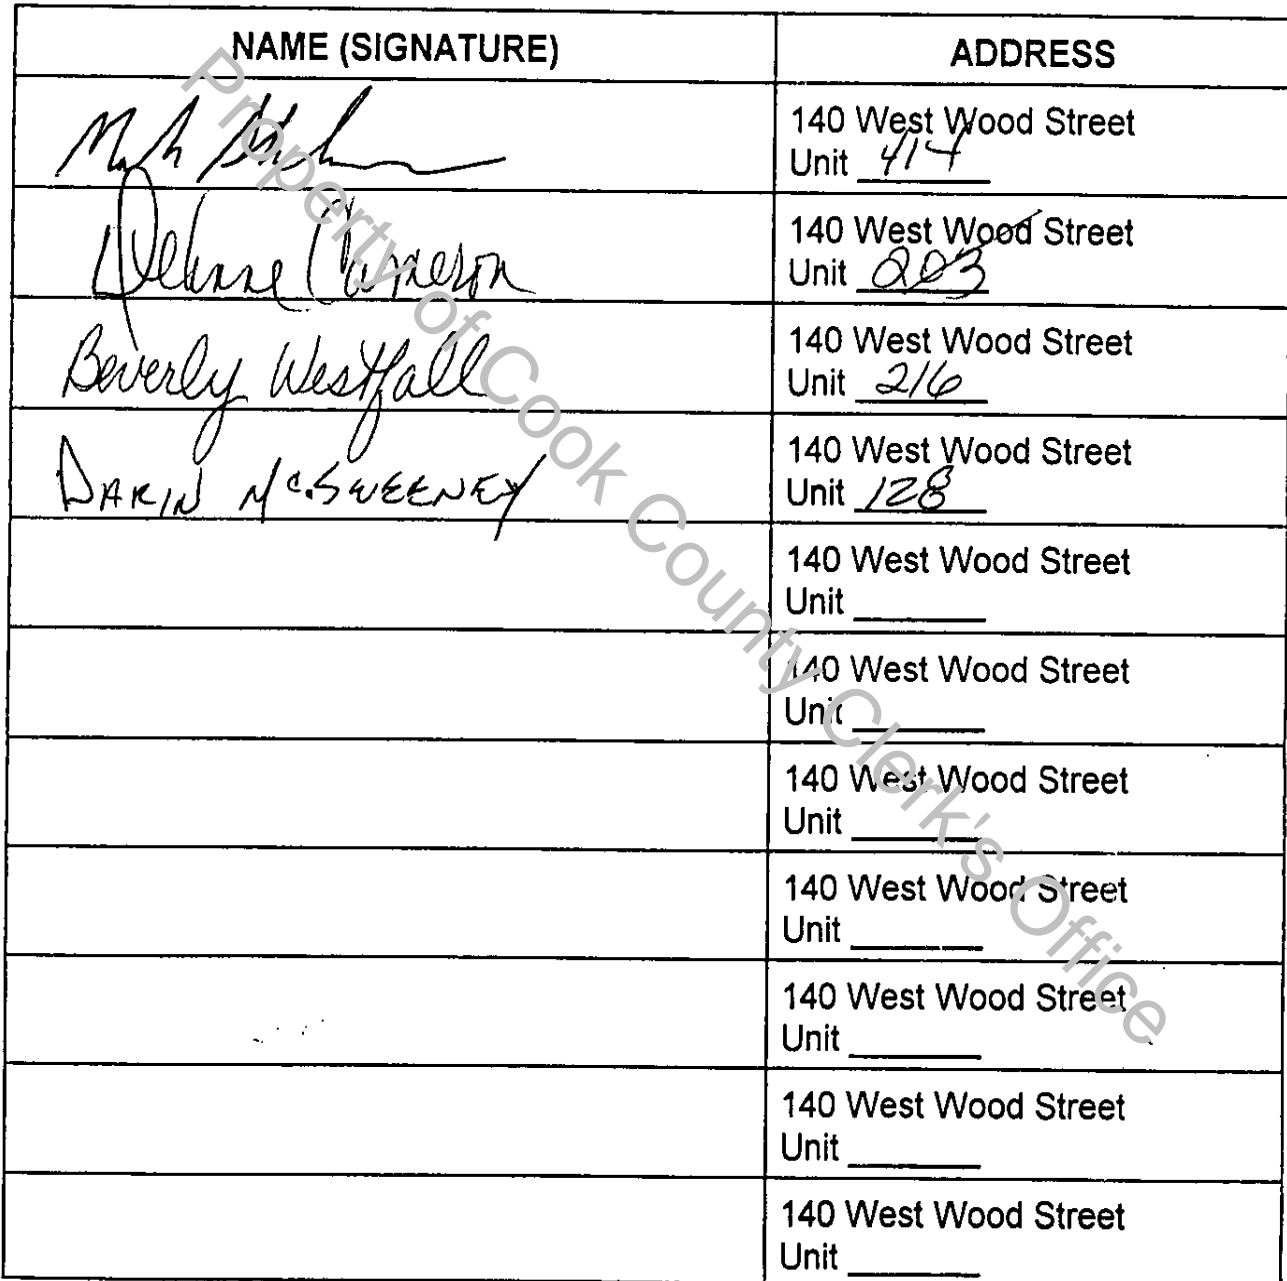 NAME (SIGNATURE) ADDRESS
140 West Wood Street
Unit 414
Cameron 140 West Wood Street
Unit 203
Beverly Westfall 140 West Wood Street
Unit 216
DARIN McSWEENEY 140 West Wood Street
Unit 128
140 West Wood Street
Unit
140 West Wood Street
Unit
140 West Wood Street
Unit
140 West Wood Street
Unit
140 West Wood Street
Unit
140 West Wood Street
Unit
140 West Wood Street
Unit
Property of Cook County Clerk's Office